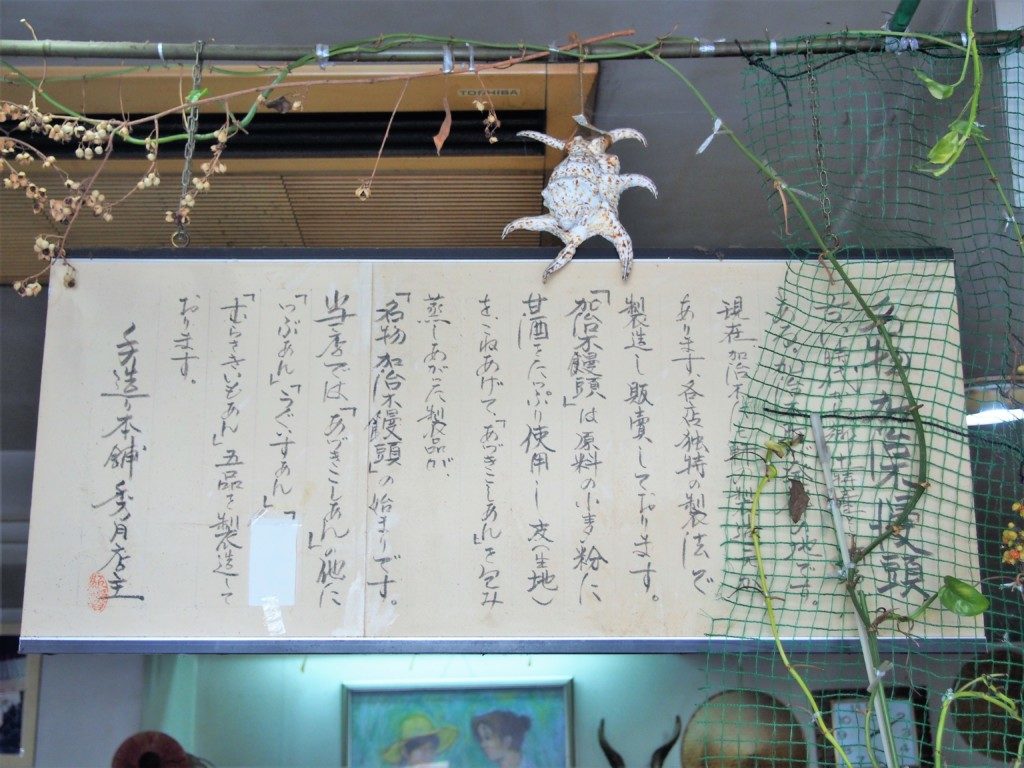 TOSHIBA
名物 加治木饅頭
現在加治木
あります。各店独特の製法で
製造し販賣しております。
「加治木饅頭」は原料の小麦粉に
甘酒をたっぷり使用し皮(生地)
をこねあげて、「あづきこしあん」を包み
蒸しあがった製品が、
「名物 加治木饅頭」の始まりです。
当店では「あづきこしあん」の他に
「つぶあん」「うぐいすあん」「
「むらさきいもあん」五品を製造して
おります。
手造り本舗 秀月店主